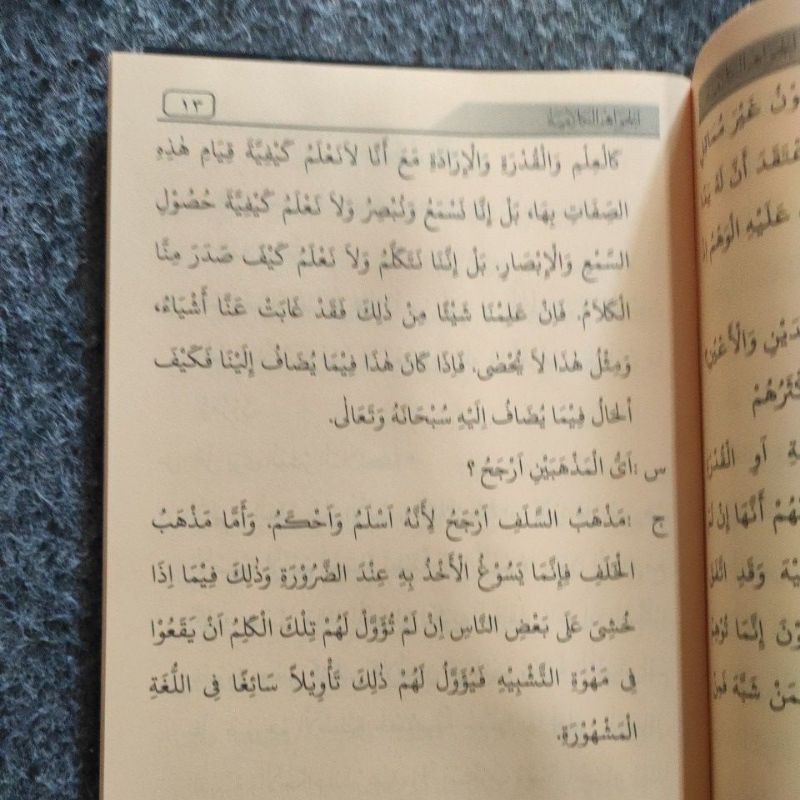 ١٣
الجواهر الكلامية
كَالْعِلْمِ وَالْقُدْرَةِ وَالْإِرَادَةِ مَعَ أَنَّا لَانَعْلَمُ كَيْفِيَّةَ قِيَامِ هٰذِهِ
الصِّفَاتِ بِهَا، بَلْ إِنَّا نَسْمَعُ وَنُبْصِرُ وَلَا نَعْلَمُ كَيْفِيَّةَ حُصُوْلِ
السَّمْعِ وَالْإِبْصَارِ. بَلْ إِنَّنَا نَتَكَلَّمُ وَلَا نَعْلَمُ كَيْفَ صَدَرَ مِنَّا
الْكَلَامُ. فَاِنْ عَلِمْنَا شَيْئًا مِنْ ذٰلِكَ فَقَدْ غَابَتْ عَنَّا أَشْيَاءُ،
وَمِثْلُ هٰذَا لَا يُحْصٰى. فَاِذَا كَانَ هٰذَا فِيْمَا يُضَافُ إِلَيْنَا فَكَيْفَ
الْحَالُ فِيْمَا يُضَافُ اِلَيْهِ سُبْحَانَهُ وَتَعَالٰى.
س :اَىُّ الْمَذْهَبَيْنِ اَرْجَحُ ؟
ج :مَذْهَبُ السَّلَفِ اَرْجَحُ لِأَنَّهُ اَسْلَمُ وَاَحْكَمُ. وَأَمَّا مَذْهَبُ
الْخَلَفِ فَإِنَّمَا يَسُوْغُ الْأَخْذُ بِهِ عِنْدَ الضَّرُوْرَةِ وَذٰلِكَ فِيْمَا اِذَا
خُشِىَ عَلَى بَعْضِ النَّاسِ اِنْ لَمْ تُؤَوَّلْ لَهُمْ تِلْكَ الْكَلِمُ اَنْ يَقَعُوْا
فِى مَهْوَةِ التَّشْبِيْهِ فَيُؤَوَّلُ لَهُمْ ذٰلِكَ تَأْوِيْلًا سَائِغًا فِى اللُّغَةِ
الْمَشْهُوْرَةِ.